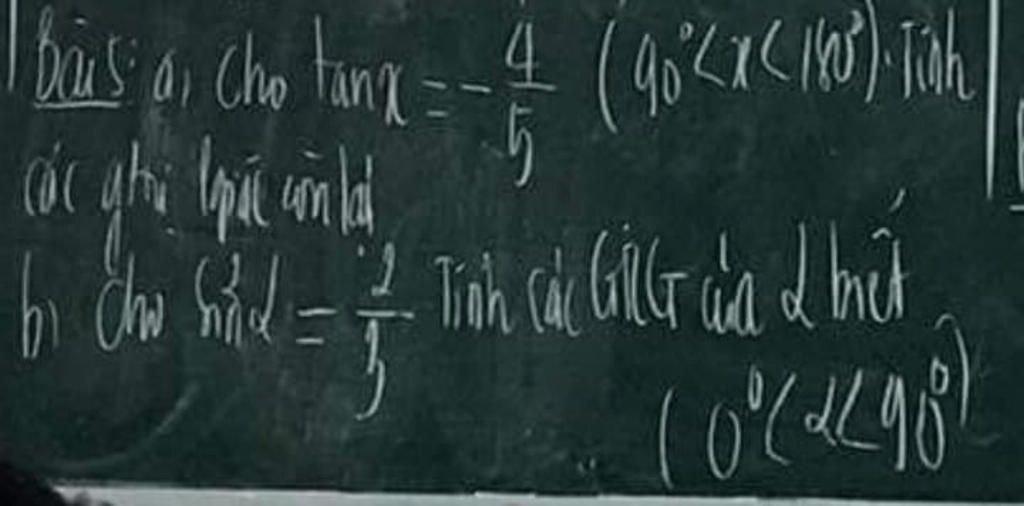 Bài 5: a, Cho tan x = - 4/5 (90° < x < 180°). Tính
các giá trị lượng giác còn lại
b, Cho sin α = 2/3 Tính các GTLG của α biết
(0° < α < 90°)